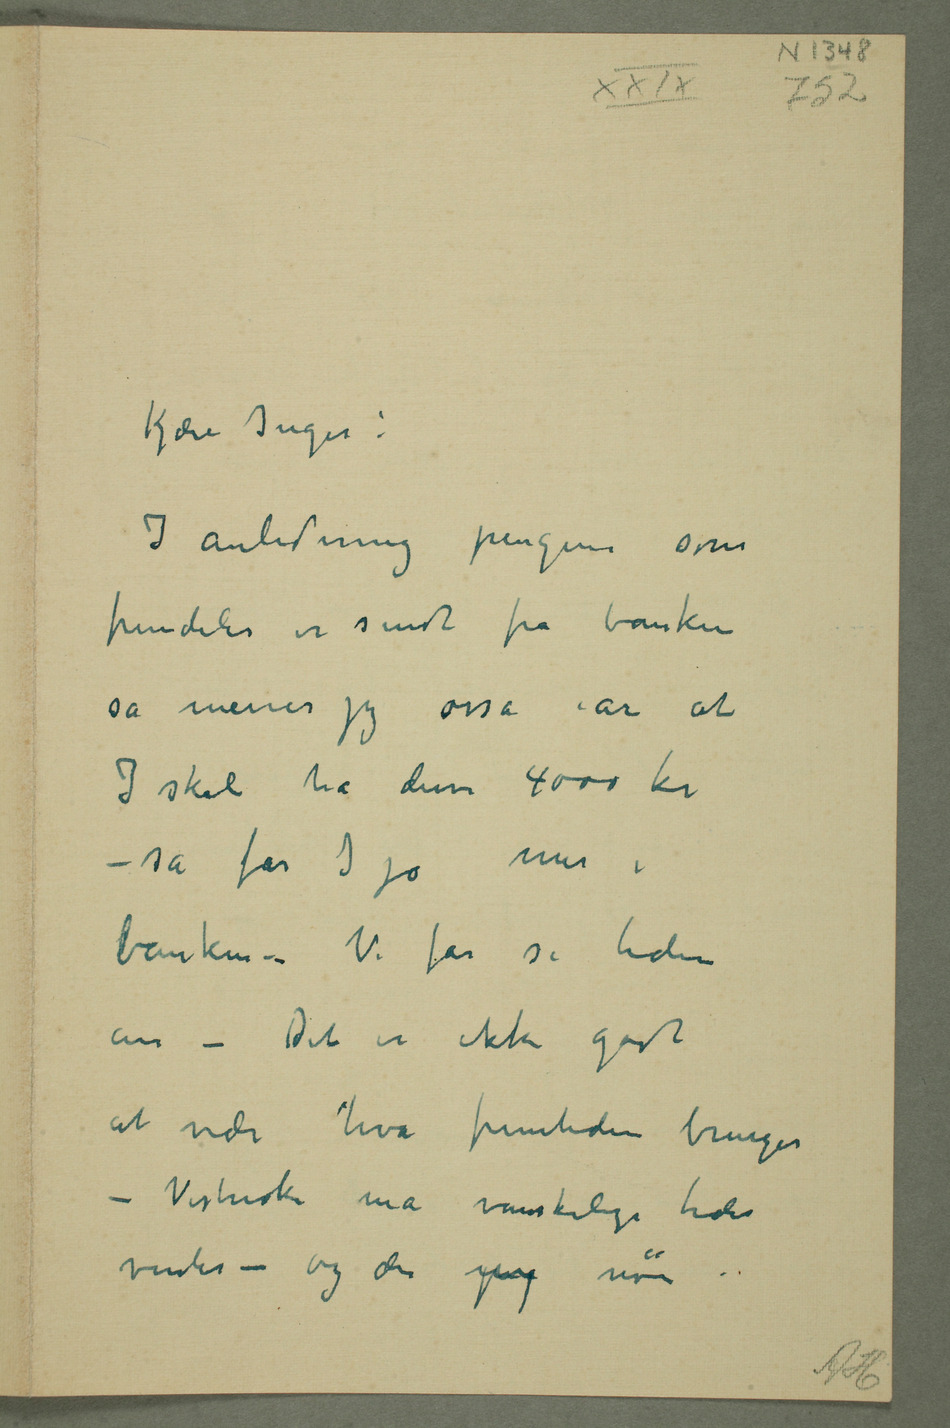 N 1348
XXIX
752
Kjære Inger!
I anledning pengene som
fremdeles er sendt fra banken
så mener jeg osså iår at
I skal ha disse 4000 kr
– så får I jo mer i
banken – Vi får se tiden
an – Det er ikke godt
at vide hva fremtiden bringer
– Vistnok må vanskelige tider
ventes – og der